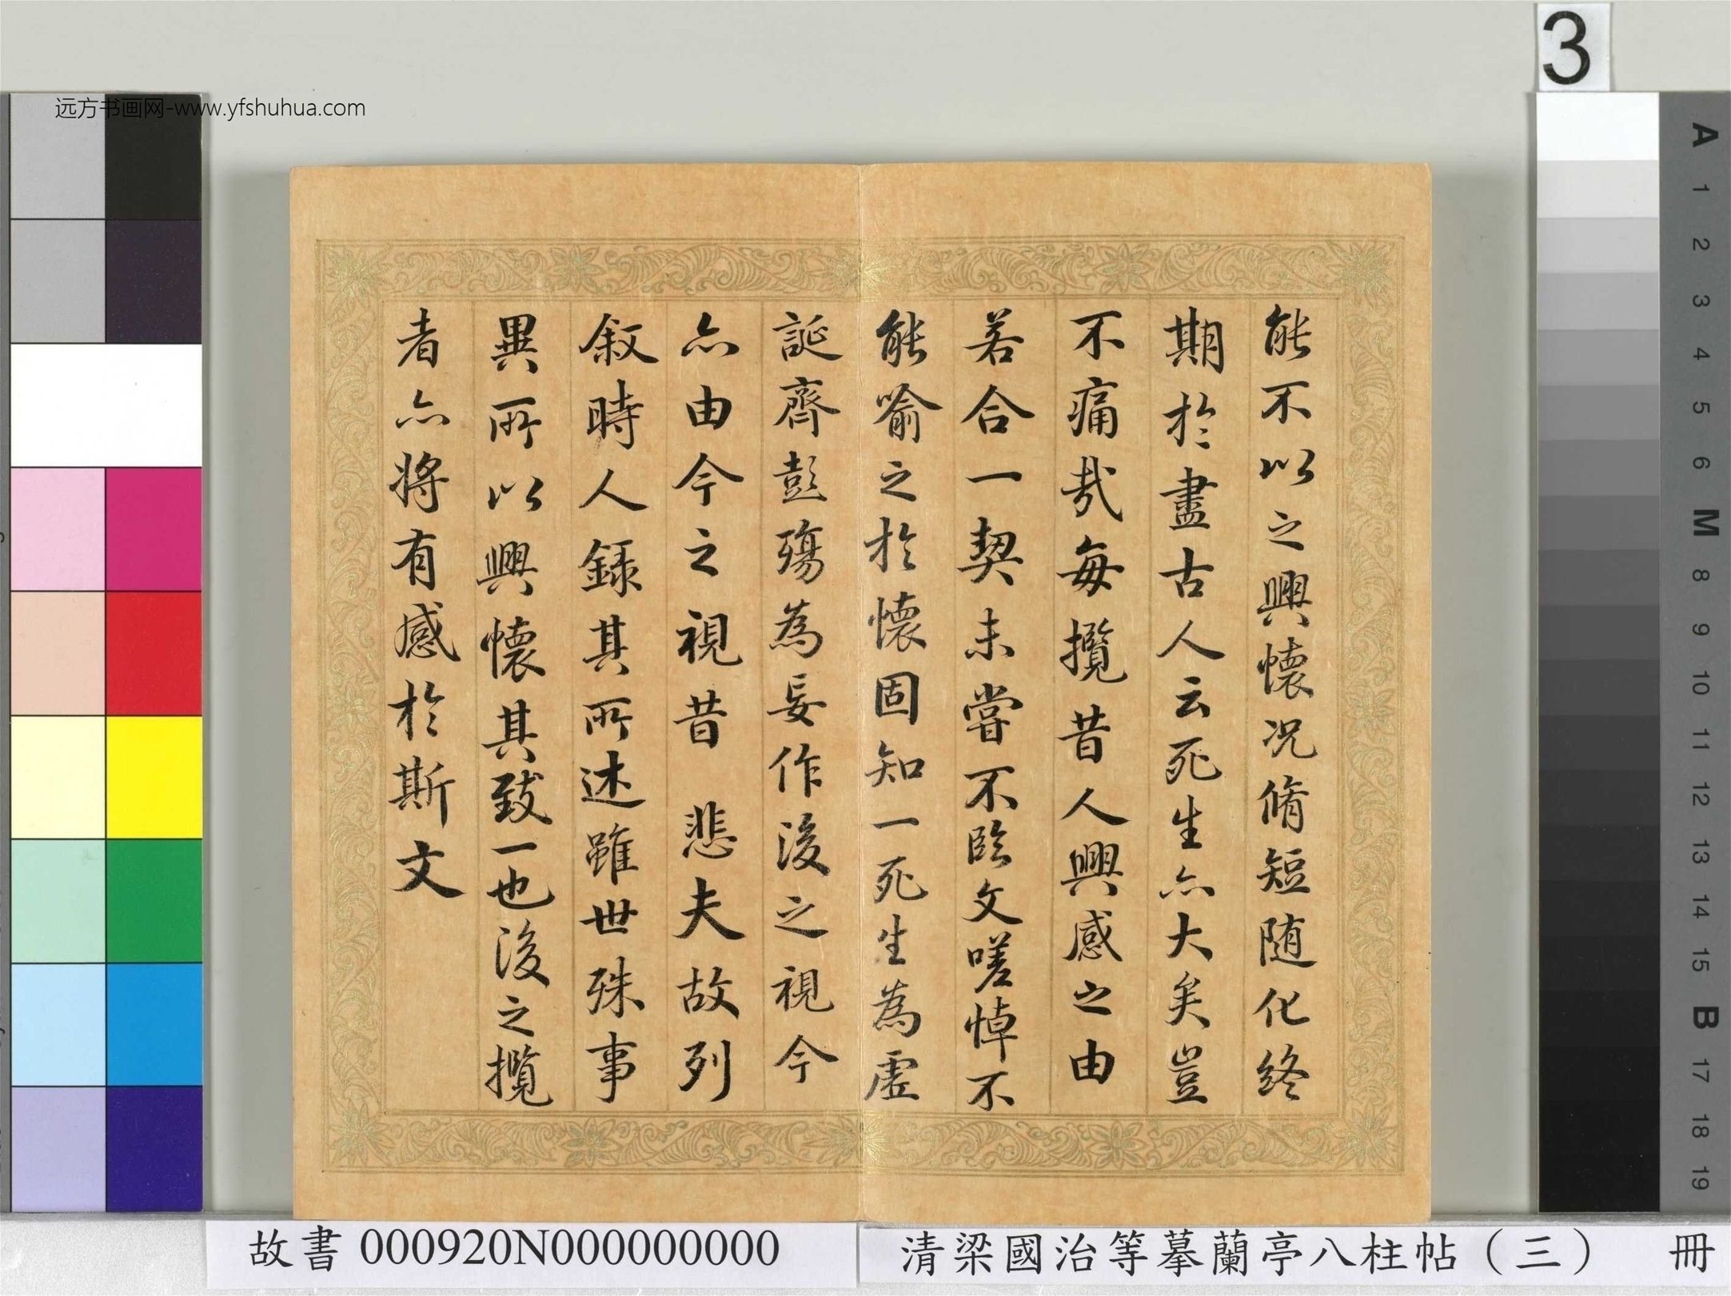 远方书画网-www.yfshuhua.com
3
能不以之興懷况脩短随化終
期於盡古人云死生亦大矣豈
不痛哉每攬昔人興感之由
若合一契未嘗不臨文嗟悼不
能喻之於懷固知一死生為虛
誕齊彭殤為妄作後之視今
亦由今之視昔 悲夫故列
叙時人録其所述雖世殊事
異所以興懷其致一也後之攬
者亦將有感於斯文
A 1 2 3 4 5 6 M 8 9 10 11 12 13 14 15 B 17 18 19
故書 000920N000000000
清梁國治等摹蘭亭八柱帖（三） 冊